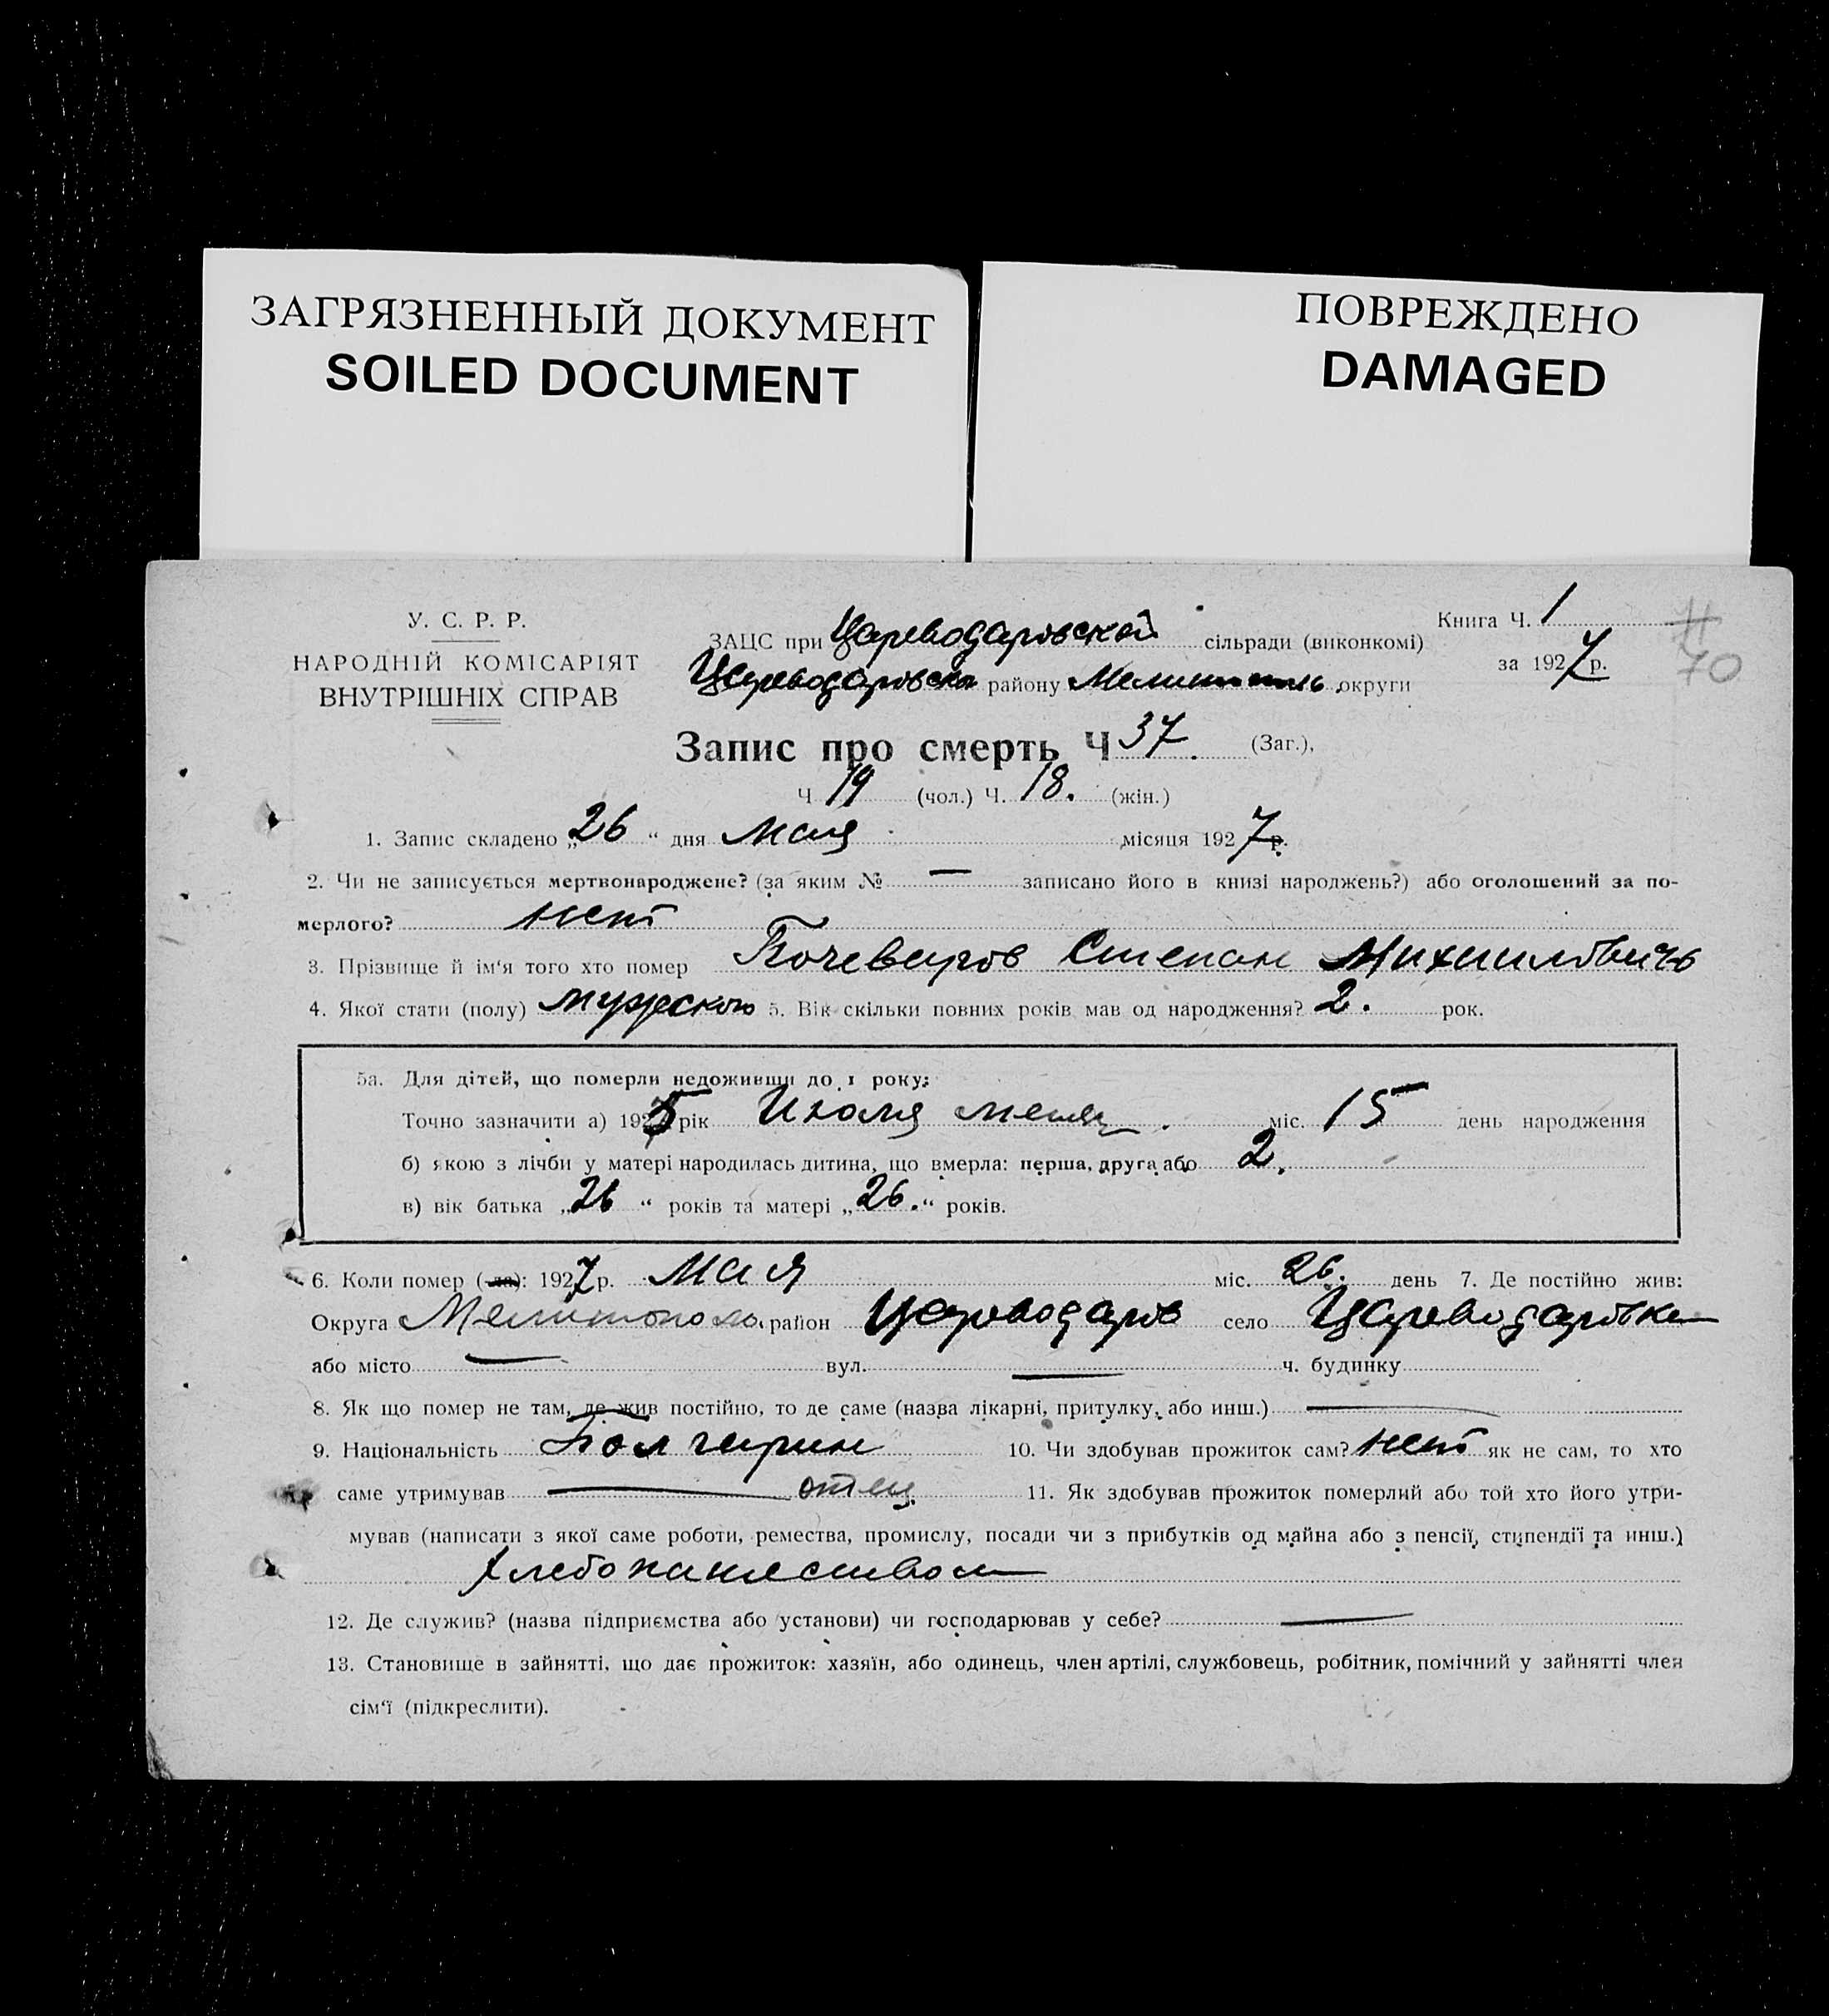 ЗАГРЯЗНЕННЫЙ ДОКУМЕНТ
SOILED DOCUMENT
ПОВРЕЖДЕНО
DAMAGED
У. С. Р. Р.
НАРОДНІЙ КОМІСАРІЯТ
ВНУТРІШНІХ СПРАВ
ЗАЦС при Цареводаровской сільради (виконкомі)
Цареводаровска району Мелитополь округи
Книга Ч. 1
за 1927 р.
70
Запис про смерть Ч 37. (Заг.),
Ч 19 (чол.) Ч. 18. (жін.)
1. Запис складено „26“ дня мая місяця 1927 р.
2. Чи не записується мертвонароджене? (за яким № — записано його в книзі народжень?) або оголошений за по-
мерлого? нет
3. Прізвище й ім‘я того хто помер Бочеваров Степан Михайлович
4. Якої стати (полу) мужеского 5. Вік скільки повних років мав од народження? 2. рок.
5а. Для дітей, що померли недоживши до 1 року:
Точно зазначити а) 1925 рік Июля месяц. міс. 15 день народження
б) якою з лічби у матері народилась дитина, що вмерла: перша, друга або 2.
в) вік батька „26“ років та матері „26.“ років.
6. Коли помер (-ла): 1927 р. мая міс. 26. день 7. Де постійно жив:
Округа Мелитополь. район Цареводаров село Цареводаровка
або місто — вул. — ч. будинку
8. Як що помер не там, де жив постійно, то де саме (назва лікарні, притулку, або инш.) —
9. Національність Болгарин 10. Чи здобував прожиток сам? нет як не сам, то хто
саме утримував — отец 11. Як здобував прожиток померлий або той хто його утри-
мував (написати з якої саме роботи, ремества, промислу, посади чи з прибутків од майна або з пенсії, стипендії та инш.)
хлебопашеством
12. Де служив? (назва підприємства або установи) чи господарював у себе? —
13. Становище в зайнятті, що дає прожиток: хазяїн, або одинець, член артілі, службовець, робітник, помічний у зайнятті член
сім‘ї (підкреслити).